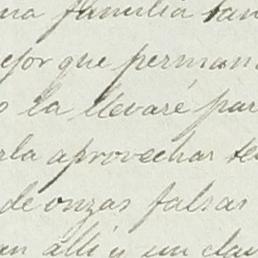 una familia tan
ejor que perman
o la llevaré par
rla aprovechar te
de onzas falsas
an allí y un clav